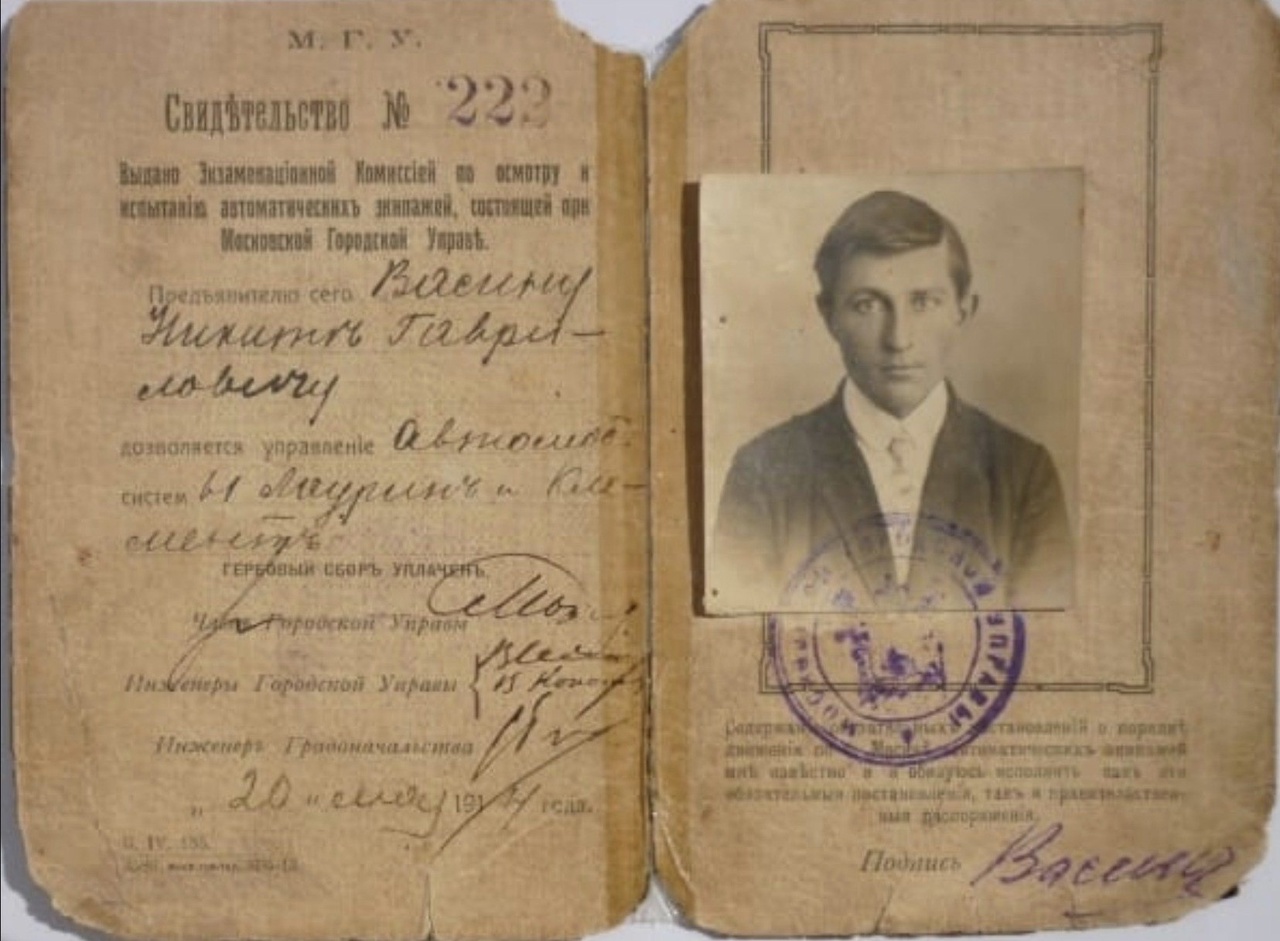 М. Г. У.
Свидѣтельство № 222
Выдано Экзаменаціонной Комиссіей по осмотру и
испытанію автоматическихъ экипажей, состоящей при
Московской Городской Управѣ.
Предъявителю сего Васину
Никитѣ Гаври-
ловичу
дозволяется управленіе автомоб.
систем ы Лауринъ и Кле-
ментъ
ГЕРБОВЫЙ СБОРЪ УПЛАЧЕНЪ.
Членъ Городской Управы
Инженеры Городской Управы
Инженеръ Градоначальства
„ 20 " 1914 года.
Содержаніе обязательныхъ постановленій о порядкѣ
движенія по г. Москвѣ автоматическихъ экипажей
мнѣ извѣстно и я обязуюсь исполнять какъ эти
обязательныя постановленія, такъ и правительствен-
ныя распоряженія.
Подпись Васинъ